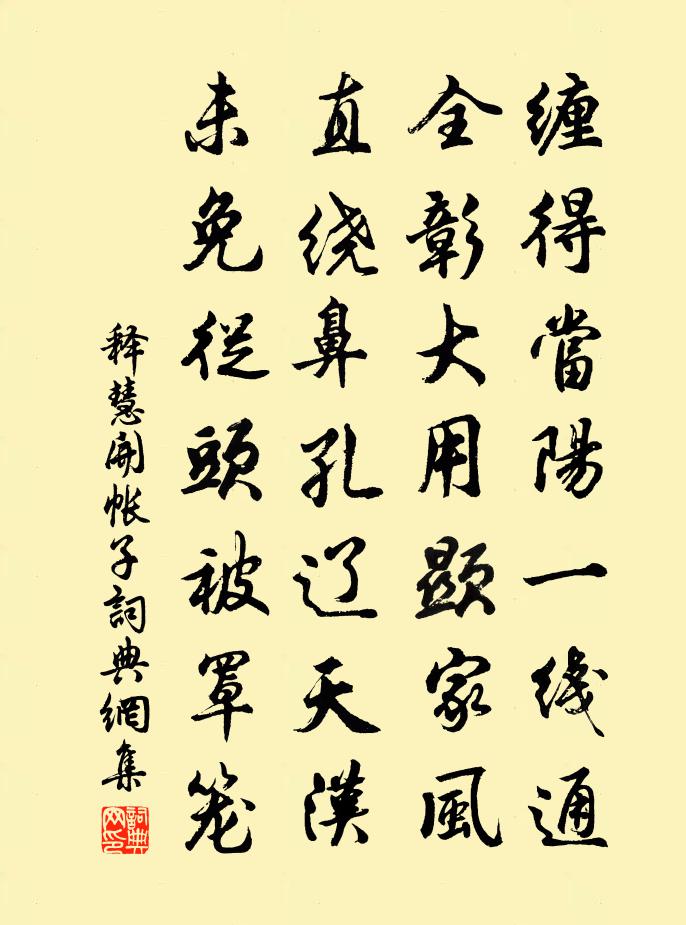 缠得當陽一线通
全彰大用顯家風
直绕鼻孔辽天漢
未免從頭被罩笼
释慧開帐子詞典網集
詞典网印